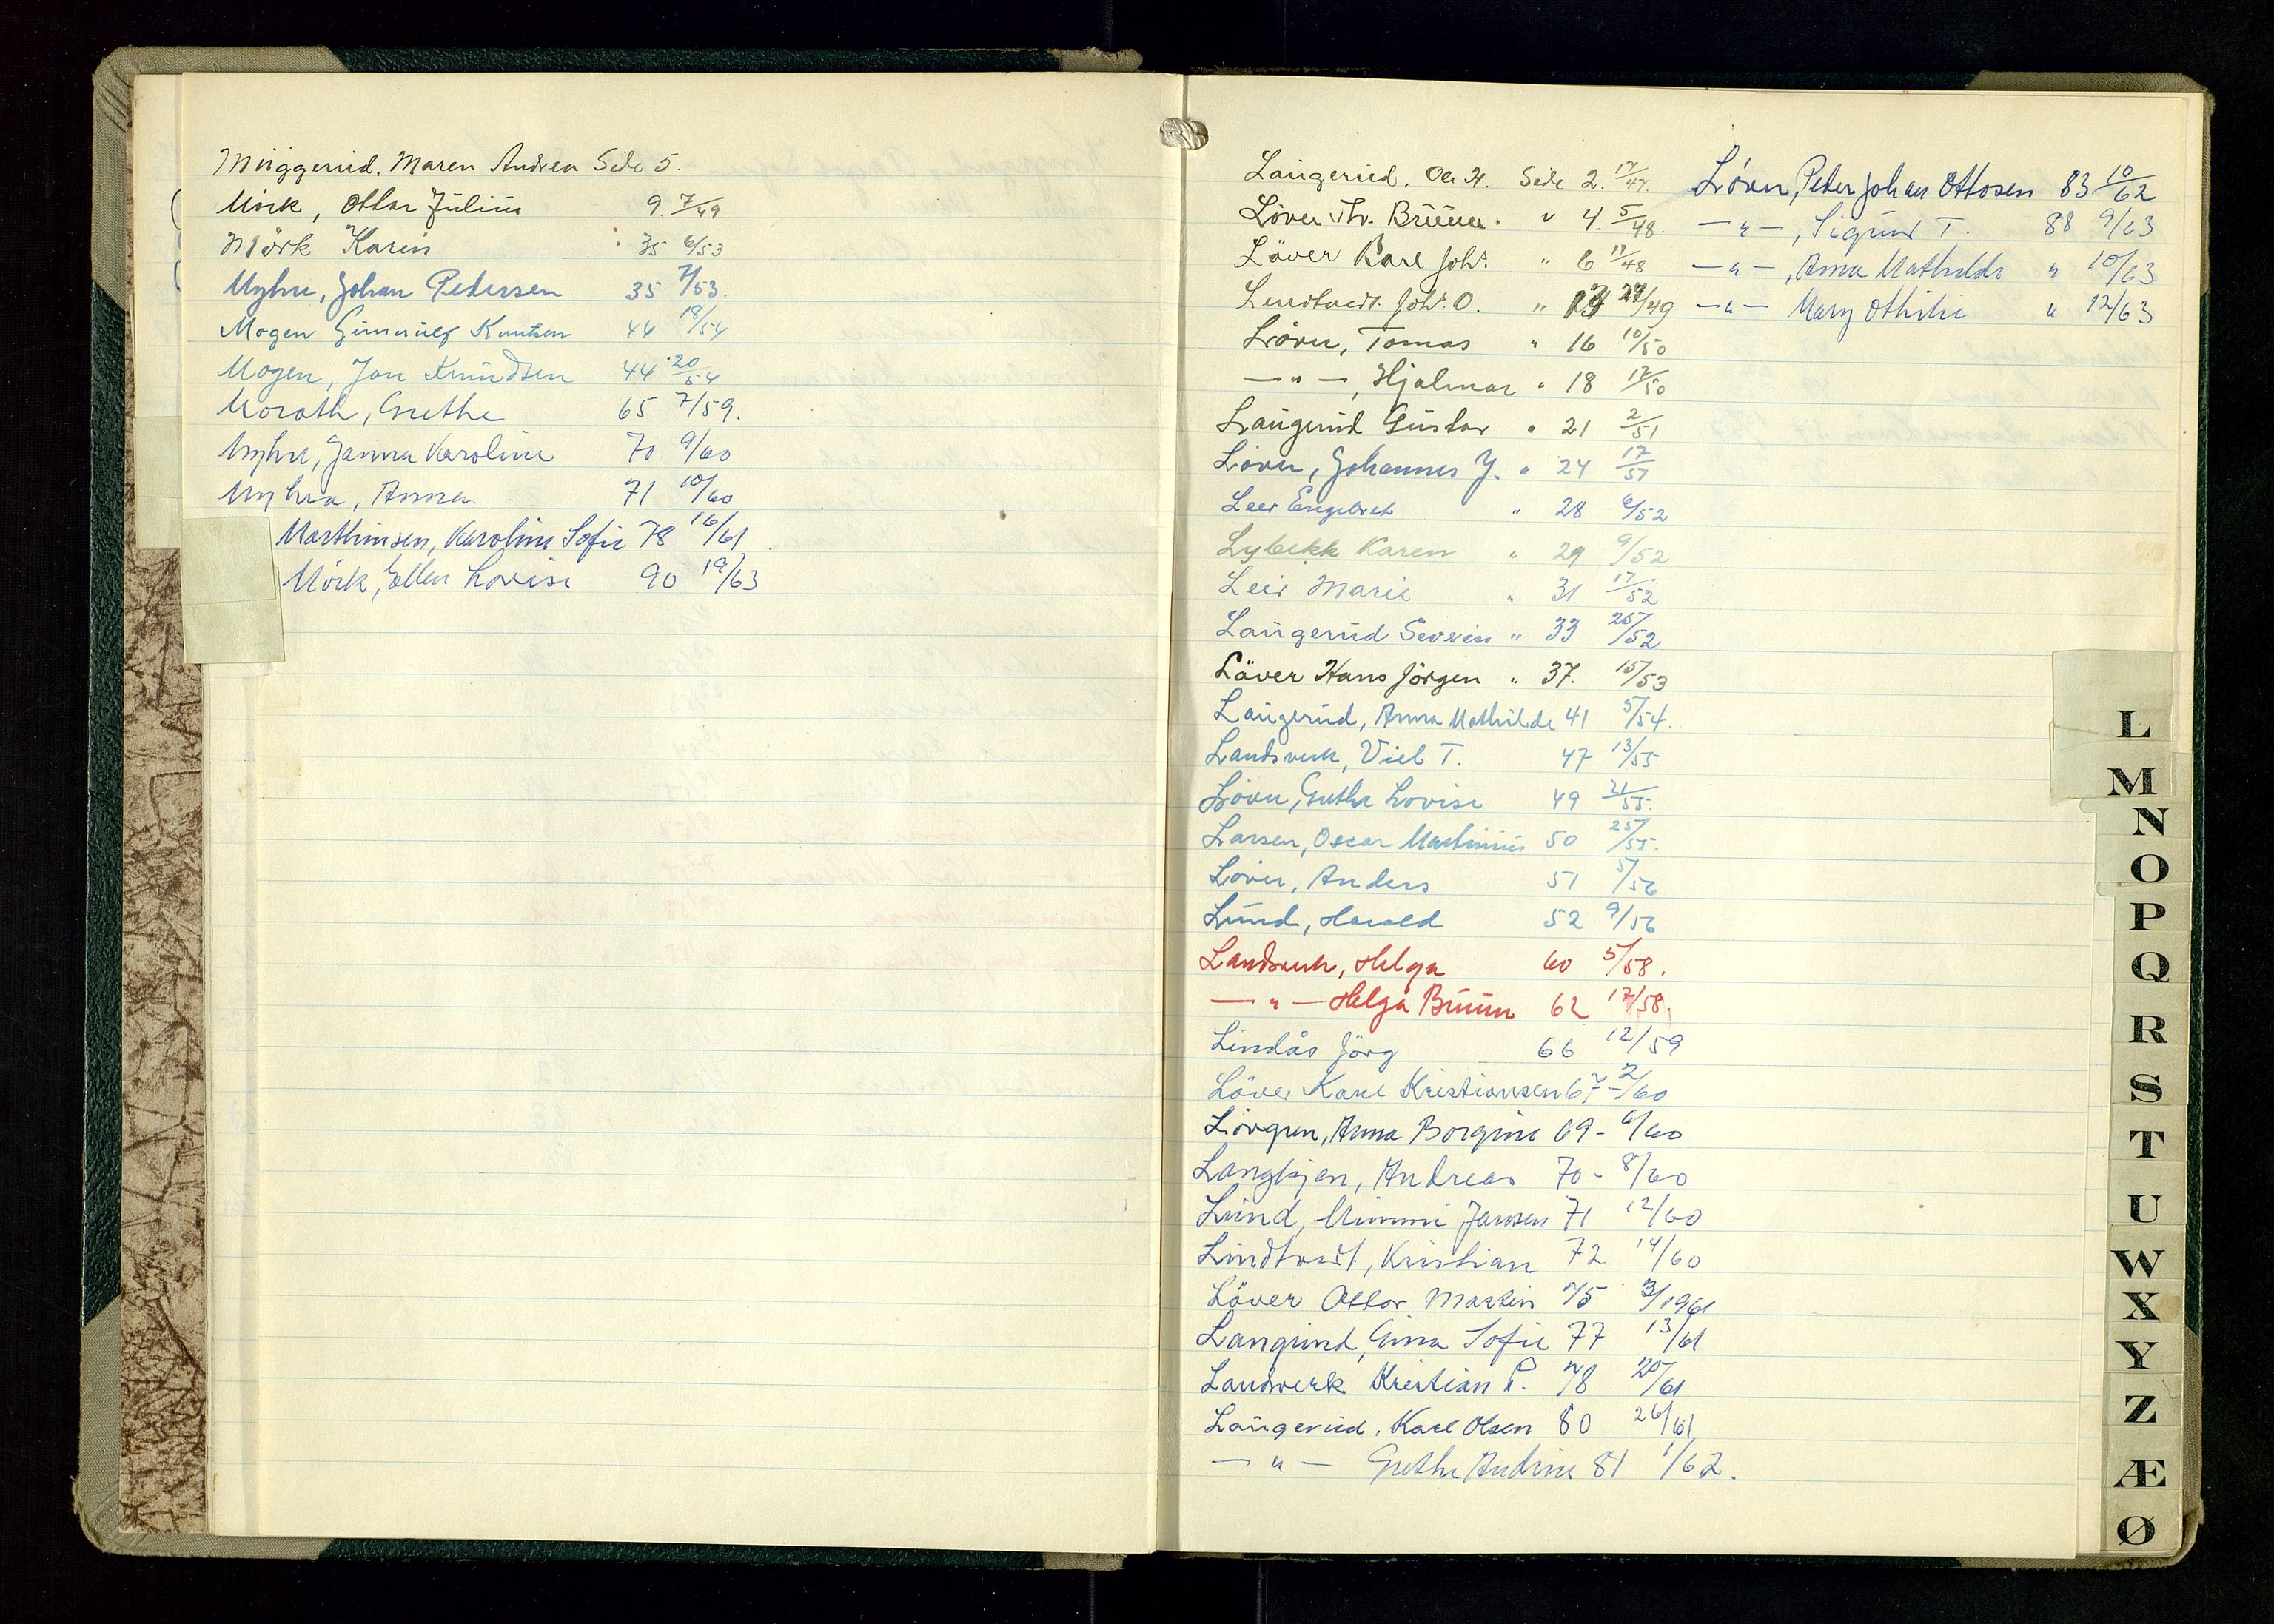 Muggerud, Maren Andrea Side 5.
Mörk, Ottar Julius 9. 7/49
Mörk Karen 35 6/53
Myhre, Johan Pedersen 35 7/53.
Mogen Gunnulf Knutsen 44 18/54
Mogen, Jon Knudsen 44 20/54
Moroth, Grethe 65 7/59.
Myhre, Janna Karoline 70 9/60
Myhra, Anna 71 10/60
Marthinsen, Karoline Sofie 78 16/61
Mörk, Ellen Lovise 90 19/63
Laugerud. Ole H. Side 2. 17/47
Löver Th. Bruun. " 4. 5/48.
Löver Karl Johs. " 6 17/48
Lindtvedt. Johs. O. " 13 27/49
Löver, Tomas " 16 10/50
— " —, Hjalmar " 18 12/50
Laugerud Gustav " 21 2/51
Löver, Johannes J. " 24 17/51
Leer Engebret " 28 6/52
Lybekk Karen " 29 9/52
Leir Marie " 31 17/52
Laugerud Severin " 33 25/52
Löver Hans Jörgen " 37. 15/53
Laugerud, Anna Mathilde 41 5/54.
Landsverk, Viel T. 47 13/55
Löver, Grethe Lovise 49 21/55.
Larsen, Oscar Martinius 50 25/55.
Löver, Anders 51 5/56
Lund, Harald 52 9/56
Landsverk, Helga 60 5/58.
— " — Helga Bruun 62 17/58.
Lindås Jörg 66 12/59
Löver Karl Kristiansen 67 - 2/60
Lövgren, Anna Borgine 69 - 6/60
Langkjen, Andreas 70 - 8/60
Lund, Mimmi Jansen 71 12/60
Lindtvedt, Kristian 72 14/60
Löver Ottar Martin 75 3/1961
Laugerud, Gina Sofie 77 13/61
Landsverk Kristian P. 78 20/61
Laugerud. Karl Olsen 80 26/61
— " — Grethe Andrine 81 1/62.
Löver, Peder Johan Ottosen 83 10/62
— " —, Sigurd T. 88 9/63
— " —, Anna Mathilde " 10/63
— " — Mary Othilie " 12/63
L
M
N
O
P
Q
R
S
T
U
W
X
Y
Z
Æ
Ø